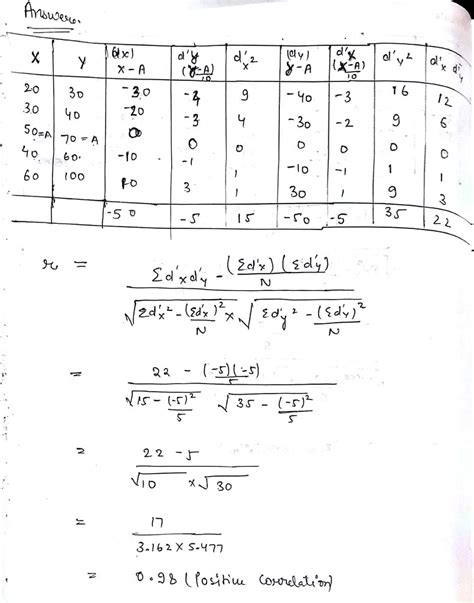 Answer.
X Y (dx) x-A d'y (y-A)/10 d'x² (dy) y-A d'x (x-A)/10 d'y² d'x d'y
20 30 -30 -4 9 -40 -3 16 12
30 40 -20 -3 4 -30 -2 9 6
50=A 70=A 0 0 0 0 0 0 0
40 60 -10 -1 1 -10 -1 1 1
60 100 10 3 1 30 1 9 3
-50 -5 15 -50 -5 35 22
r = Σd'xd'y - (Σd'x)(Σd'y)/N
√Σd'x² - (Σd'x)²/N × √Σd'y² - (Σd'y)²/N
= 22 - (-5)(-5)/5
√15 - (-5)²/5 √35 - (-5)²/5
= 22 - 5
√10 × √30
= 17
3.162 × 5.477
= 0.98 (Positive Correlation)